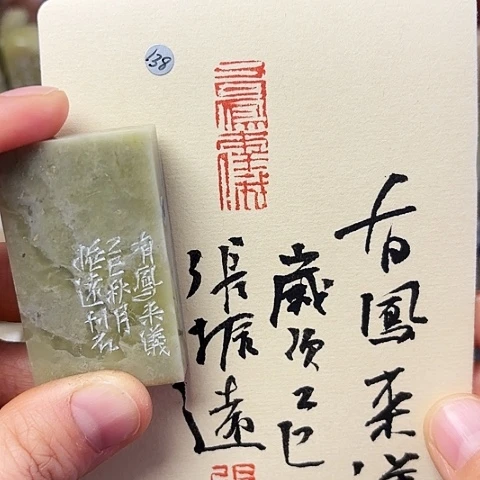 138
有鳳來儀
有鳳来儀
歲次乙巳
張振遠
有鳳来儀
乙巳秋月
振遠刊石